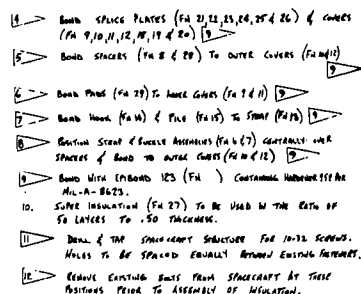 4 BOND SPLICE PLATES (FN 21,22,23,24,25 & 26) & COVERS
(FN 9,10,11,12,18,19 & 20) 9
5 BOND SPACERS (FN 8 & 28) TO OUTER COVERS (FN 10 & 12)
9
6 BOND PADS (FN 29) TO INNER COVERS (FN 9 & 11) 9
7 BOND HOOK (FN 14) & PILE (FN 15) TO STRAP (FN 13) 9
8 POSITION STRAP & BUCKLE ASSEMBLIES (FN 6 & 7) CENTRALLY OVER
SPACERS & BOND TO OUTER COVERS (FN 10 & 12) 9
9 BOND WITH EPIBOND 123 (FN ) CONTAINING HARDENER PER
MIL-A-8623.
10. SUPER INSULATION (FN 27) TO BE USED IN THE RATIO OF
50 LAYERS TO .50 THICKNESS.
11 DRILL & TAP SPACECRAFT STRUCTURE FOR 10-32 SCREWS.
HOLES TO BE SPACED EQUALLY BETWEEN EXISTING FASTENERS.
12 REMOVE EXISTING BOLTS FROM SPACECRAFT AT THESE
POSITIONS PRIOR TO ASSEMBLY OF INSULATION.